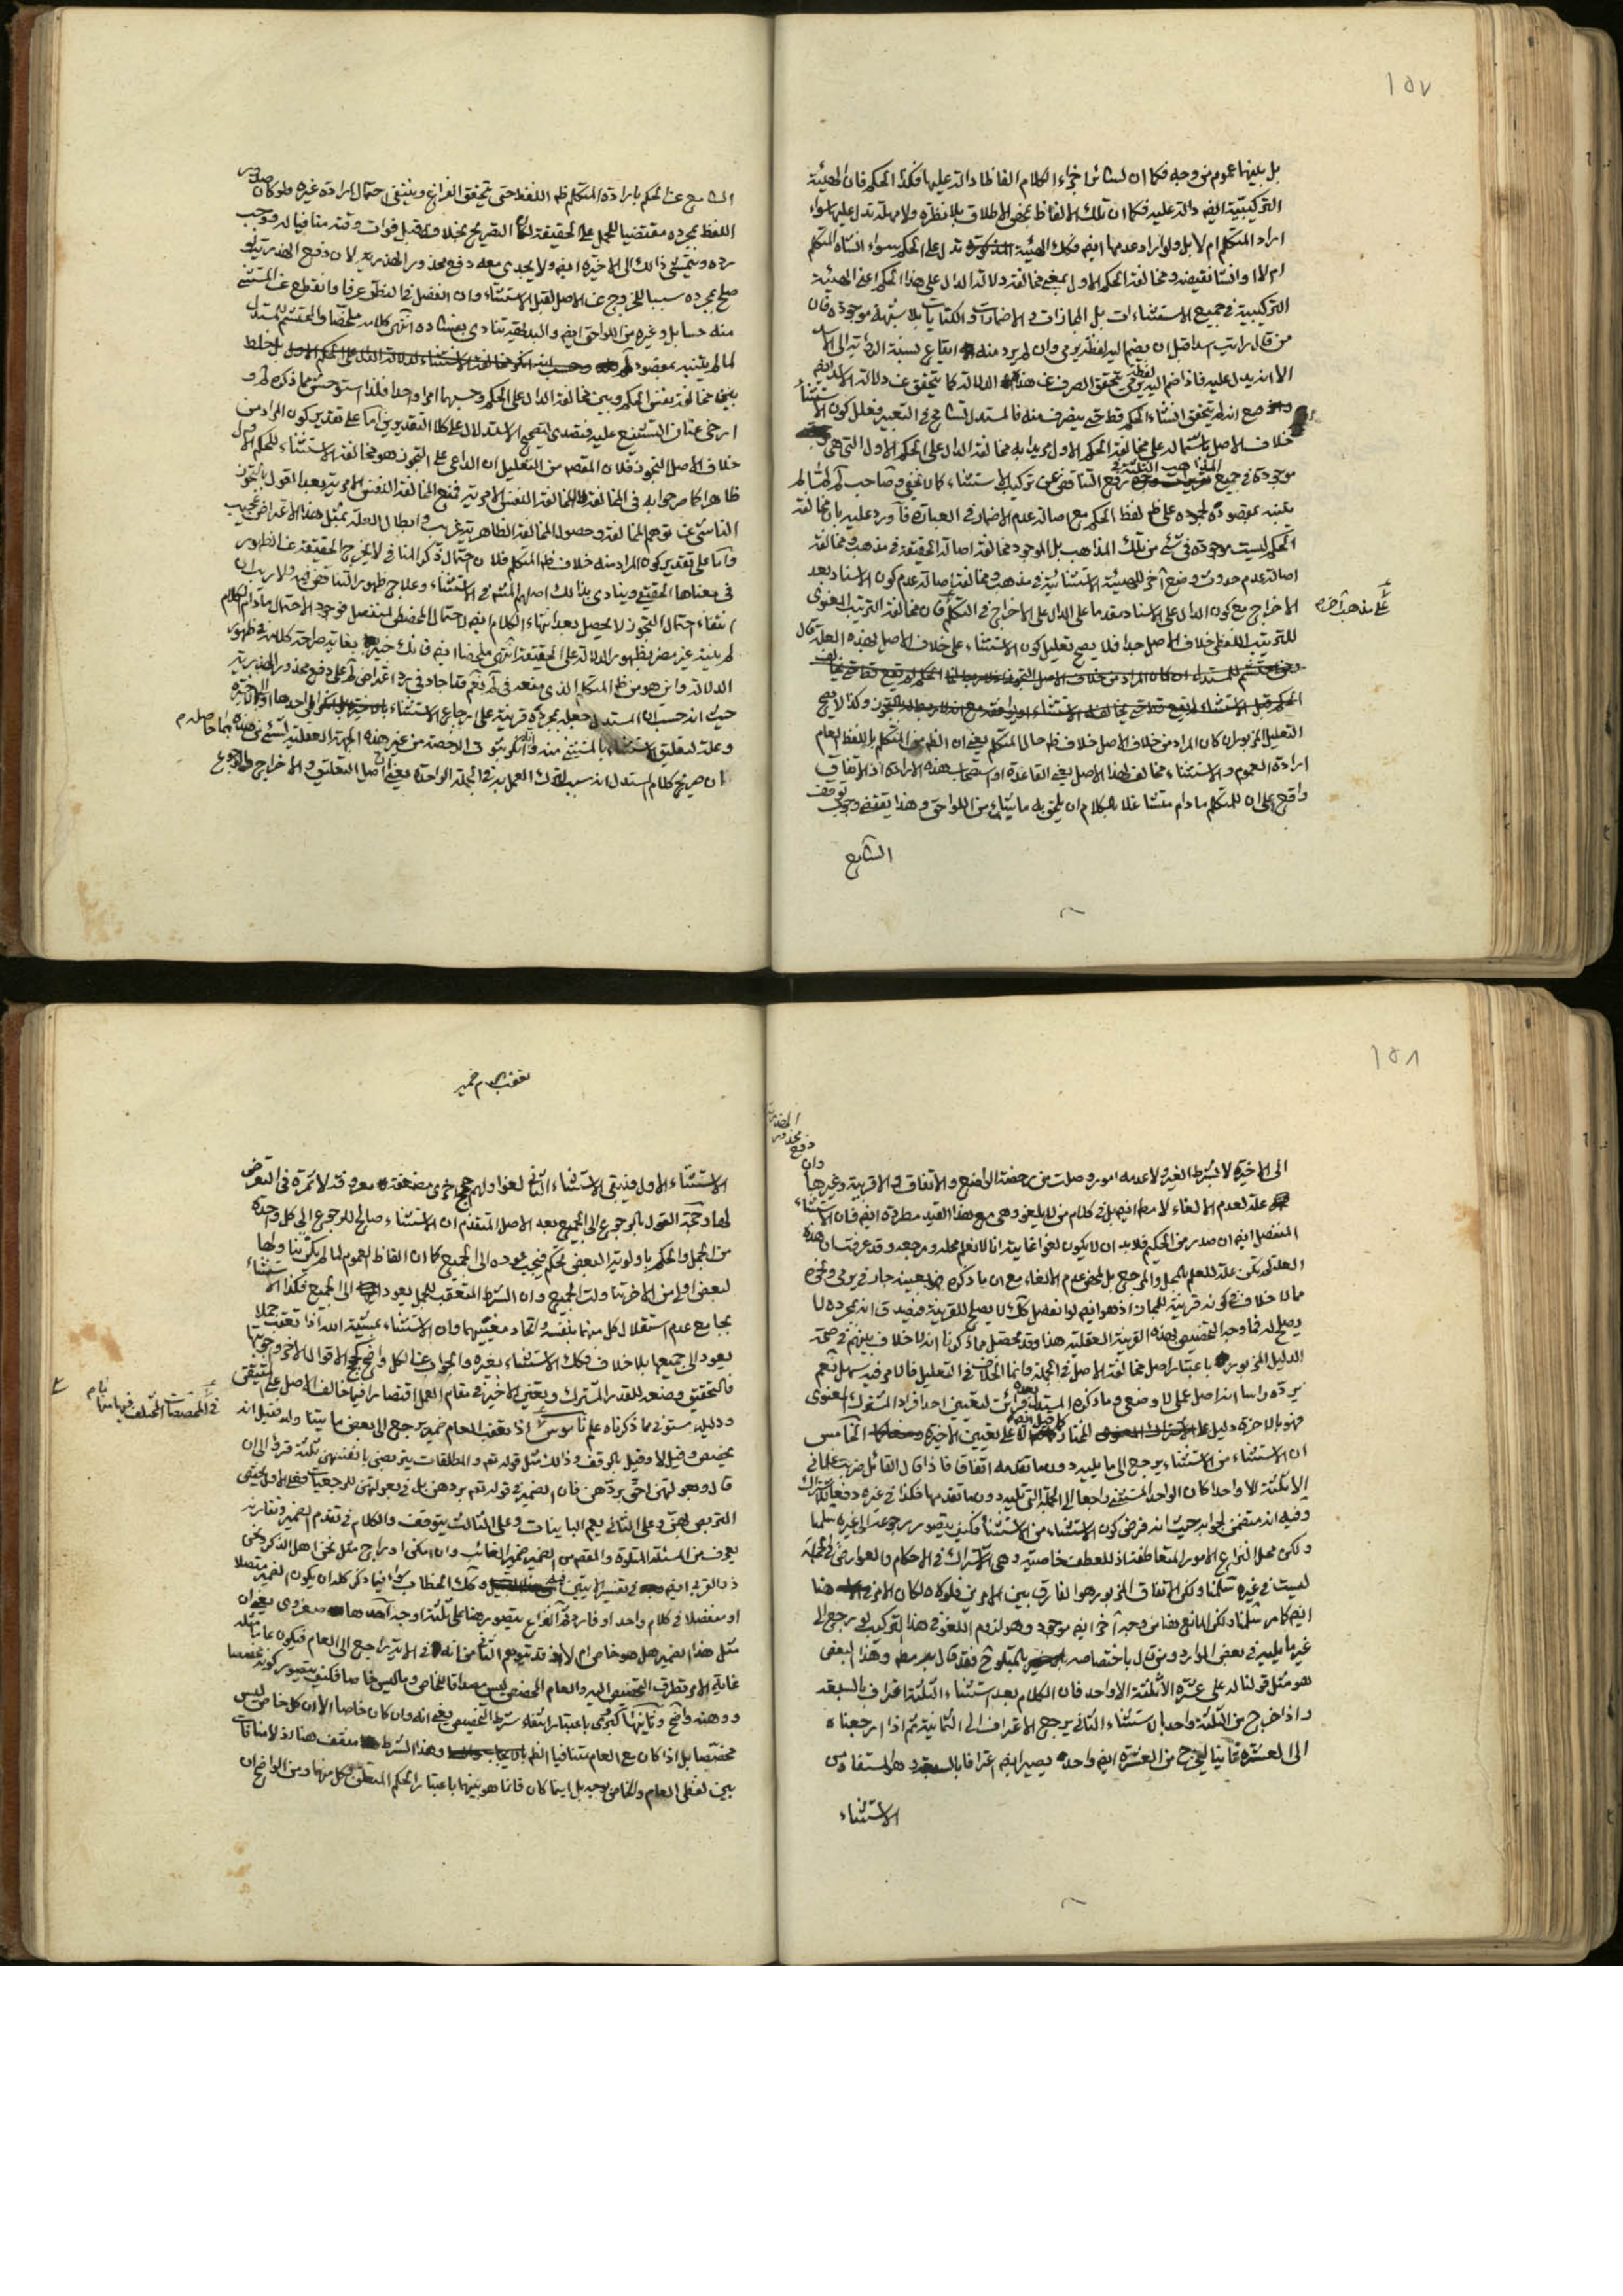 ١٥٧
بل بينهما عموم من وجه فكما ان لسائر اجزاء الكلام الفاظا دالة عليها فكذا الحكم فان الهيئة
التركيبية ايضا دالة عليه فكما ان تلك الالفاظ بمحض الاطلاق بلا نظرة ولا مهلة تدل عليها سواء
اراد المتكلم ام لا بل ولو اراد عدمها ايضا فكك الهيئة المذكورة تدل على الحكم سواء انشاه المتكلم
ام لا او انشا نقيضه ومخالفة الحكم الاول بمعنى مخالفة دلالة الدال على هذا الحكم اعنى الهيئة
التركيبية فى جميع الاستثناءات بل المجازات والاضمارات والكنايات بلا شبهة موجودة فان
من قال رايت اسدا قبل ان يضم اليه لفظ يرمى وان لم يرد منه ايقاع نسبة الرؤية الى الاسد
الا انه يدل عليه فاذا ضم اليه يرمى يتحقق الصرف عن هذه الدلالة كما يتحقق عن دلالة الاسد ايضا
انه لم يتحقق انشاء الحكم قط حتى ينصرف منه فالمستدل تسامح فى التعبير فعلل كون الاستثناء
خلاف الاصل باشتماله على مخالفة الحكم الاول مريدا به مخالفة الدال على الحكم الاول التى هى
موجودة فى جميع المذاهب الثلثة فى رفع التناقض عن تركيب الاستثناء كما لا يخفى وصاحب لم لما لم
يتنبه بمقصوده لجموده على ظ لفظ الحكم مع اصالة عدم الاضمار فى العبارة فأورد عليه بان مخالفة
الحكم ليست موجودة فى شئ من تلك المذاهب بل الموجود مخالفة اصالة الحقيقة فى مذهب ومخالفة
اصالة عدم حدوث وضع آخر للهيئة الاستثنائية فى مذهب ومخالفة اصالة عدم كون الاسناد بعد
الاخراج مع كون الدال على الاسناد مقدما على الدال على الاخراج فى التكلم فان مخالفة الترتيب المعنوى
على مذهب آخر
للترتيب اللفظى خلاف الاصل جدا فلا يصح تعليل كون الاستثناء على خلاف الاصل بهذه العلة قال
التعليل المزبور ان كان المراد من خلاف الاصل خلاف ظ حال المتكلم يعنى ان الظ من المتكلم باللفظ العام
ارادة العموم والاستثناء مخالف لهذا الاصل يعنى القاعدة او استصحاب هذه الارادة اذ الاتفاق
واقع على ان للمتكلم ما دام متشاغلا بالكلام ان يلحق به ما شاء من اللواحق وهذا يقتضى وجوب توقف
السامع
السامع عن الحكم بارادة المتكلم ظ اللفظ حتى يتحقق الفراغ وينتفى احتمال ارادة غيره ولو كان صدور
اللفظ بمجرده مقتضيا للحمل على الحقيقة لكان التصريح بخلافه قبل فوات وقته منافيا له فوجب
رده ويتمشى ذلك الى الاخيرة ايضا ولا يجدى معه دفع محذور الهذرية لان دفع الهذرية لو
صلح بمجرده سببا للخروج عن الاصل لقبل الاستثناء وان انفصل فى النطق عرفا وانقطع عن المستثنى
منه حسا بل وغيره من اللواحق ايضا والبديهة تنادى بفساده انتهى كلامه ملخصا والمحتشم المستدل
لما لم يتنبه بمقصود
بين مخالفة نفس الحكم وبين مخالفة الدال على الحكم وحسبهما امرا واحدا فلذا استوحش مما ذكره لم و
ارخى عنان التشنيع عليه فتصدى لتصحيح الاستدلال على كلا التقديرين اما على تقدير كون المراد من
خلاف الاصل التجوز فلان المقصد من التعليل ان الداعى على التجوز هو مخالفة الاستثناء للحكم الاول
ظاهرا كما صرحوا به فى المخالفة النفس الامرية فمنع المخالفة النفس الامرية بعد القول بالتجوز
الناشئ عن توهم المخالفة وحصول المخالفة الظاهرية غريب وابطال العلة بمثل هذا الاعتراض عجيب
واما على تقدير كون المراد منه خلاف ظ المتكلم فلان احتمال ذكر المنافى لا يخرج الحقيقة عن الظهور
فى معناها الحقيقى وينادى بذلك اصلهم المشهور فى الاستثناء وعلاج ظهور التناقض فيه ولا ريب ان
انتفاء احتمال التجوز لا يحصل بعد انتهاء الكلام ايضا لاحتمال المخصص المنفصل فوجود الاحتمال ما دام الكلام
لم ينته غير مضر بظهور الدلالة على الحقيقة انتهى ملخصا ايضا فانك خبير بغاية صراحة كلامه فى ظهور
الدلالة واين هو من ظ المتكلم الذى منعه فى لم نعم قد اجاد فى رد اعتراض لم على دفع محذور الهذرية
حيث انه حسب ان المستدل جعله بمجرده قرينة على ارجاع الاستثناء
وعلة لتعليق الاستثناء بالمستثنى منه
ان صريح كلام المستدل انه سبب لترك العمل به فى الجملة الواحدة يعنى اصل التعليق والاخراج
١٥٨
الى الاخيرة لا بشرط الغير ولا عدمه امور وصلت من رخصة الواضع والاتفاق والاقربية وغيرها وان
دفع محذور الهذرية
علة لعدم الالغاء لا مط ايضا بل فى كلام من لا يلغو وهى مع هذا القيد مطردة ايضا فان الاستثناء
المنفصل ايضا ان صدر من الحكيم فلا بد ان لا يكون لغوا غايته انا لا نعلم محله ومرجعه وقد عرفت ان هذه
العلة لم تكن علة للعلم بالمحل والمرجع بل لمحض عدم الالغاء مع ان ما ذكره بعينه جار فى يرمى ونحوه
مما لا خلاف فى كونه قرينة للمجاز اذ هو ايضا لو انفصل كك لا يصلح للقرينة فيصدق انه بمجرده لا
يصلح له فما وجه التخصيص بهذه القرينة العقلية هنا وقد تحصل مما ذكرنا انه لا خلاف بينهم فى صحة
الدليل المزبور باعتبار اصل مخالفة الاصل فى الجملة وانما الخلاف فى التعليل فالامر فيه سهل نعم
يرده راسا انه اصل عملى لا وضعى وما ذكره المستدل بعده قرائن لتعيين احد افراد المشترك المعنوى
فهو بالاخرة دليل على المختار كما قيل ايضا لا على تعيين الاخيرة الخامس
ان الاستثناء من الاستثناء يرجع الى ما يليه دون ما تقدمه اتفاقا فاذا قال القائل ضربت غلمانى
الا ثلثة الا واحدا كان الواحد المستثنى راجعا الى الجملة التى تليه دون ما تقدمها فكذا فى غيره دفعا للاشتراك
وفيه انه متضمن لجوابه حيث انه فرض كون الاستثناء من الاستثناء فكيف يتصور رجوعه الى غيره سلمنا
ولكن محل النزاع الامور المتعاطفة اذ للعطف خاصية وهى الاشتراك فى الاحكام والعوارض فى الجملة
ليست فى غيره سلمنا ولكن الاتفاق المزبور هو الفارق بين الامرين فلولاه لكان الامر هنا
ايضا كما مر سلمنا ولكن المانع هنا من وجه آخر ايضا موجود وهو لزوم اللغو فى هذا التركيب لو رجع الى
غير ما يليه فى بعض الموارد ومن قال باختصاصه فقد قال به مط وهذا البعض
هو مثل قولنا له على عشرة الا ثلثة الا واحد فان الكلام بعد استثناء الثلثة اعتراف بالسبعة
واذا خرج من الثلثة واحد بالاستثناء الثانى يرجع الاعتراف الى الثمانية ثم اذا ارجعناه
الى العشرة ثانيا ليخرج من العشرة ايضا واحد يصير ايضا اعترافا بالسبعة وهو المستفاد من
الاستثناء
تعقب العام ضمير
الاستثناء الاول فيبقى الاستثناء الثانى لغوا ولهم حجج اخرى مضعفة معروفة لا ثمرة فى التعرض
لها وحجة القول بالرجوع الى الجميع بعد الاصل المتقدم ان الاستثناء صالح للرجوع الى كل واحدة
من الجمل والحكم باولوية البعض تحكم فيجب عوده الى الجميع كما ان الفاظ العموم لما لم يكن تناولها
لبعض اولى من الاخر تناولت الجميع وان الشرط المتعقب للجمل يعود الى الجميع فكذا الاستثناء
بجامع عدم استقلال كل منهما بنفسه واتحاد معنييهما وان الاستثناء بمشية الله اذا تعقب جملا
يعود الى جميعها بلا خلاف فكك الاستثناء بغيره والجواب عن الكل واضح كحجج الاقوال الاخر وجوابها
فالتحقيق وضعه للقدر المشترك وتعيين الاخيرة فى مقام العمل اقتصارا فيما خالف الاصل على المتيقن
ودليله مستوفى مما ذكرناه علم ناموس اذا تعقب للعام ضمير يرجع الى بعض ما يتناوله فقيل انه
فى المخصصات المختلف فيها
يخصص وقيل لا وقيل بالوقف وذلك مثل قوله تع والمطلقات يتربصن بانفسهن ثلثة قروء الى ان
قال وبعولتهن احق بردهن فان الضمير فى قوله تع بردهن بل فى بعولتهن للرجعيات فعلى الاول يختص
التربص بهن وعلى الثانى يعم البائنات وعلى الثالث يتوقف والكلام فى تقدم الضمير وتقارنه
يعرف من المسئلة المتلوة والمقصد من الضمير ضمير الغائب وان امكن ادراج مثل نحن اهل الذكر ونحن
ذو القربى ايضا فى تفسير الآيتين وكك الخطاب سواء فيما ذكر كله ان يكون الضمير متصلا
او منفصلا فى كلام واحد او فارد ثم النزاع يتصور هنا على ثلثة اوجه احدها صغروى بمعنى ان
مثل هذا الضمير هل هو خاص ام لا
غاية الامر تطرق التخصيص اليه والعام المخصص ليس مصداقا للخاص وما ليس خاصا فكيف يتصور كونه مخصصا
ووهنه واضح وثانيها كبروى باعتبار انتفاء شرط التخصيص يعنى انه وان كان خاصا الا ان كل خاص ليس
مخصصا بل اذا كان مع العام متنافيا الظ وهذا الشرط منتف هنا اذ لا منافات
بين لفظى العام والخاص بوجه بل اينما كان فانما هو بينهما باعتبار الحكم المتعلق بكل منهما ومن الواضح ان